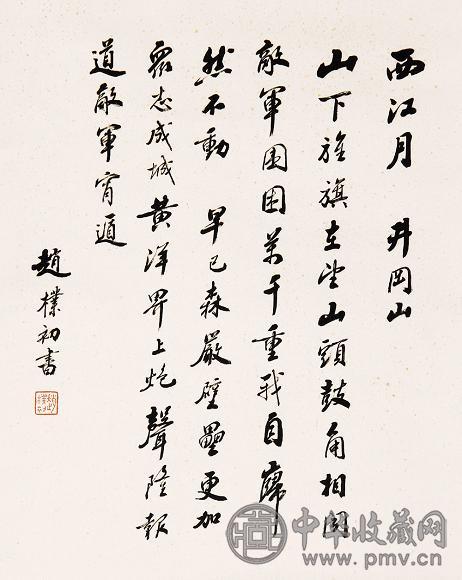 西江月 井岡山
山下旌旗在望山頭鼓角相聞
敵軍圍困萬千重我自巋
然不動 早已森嚴壁壘更加
眾志成城黃洋界上炮聲隆報
道敵軍宵遁
趙樸初書
中华收藏网
www.pmv.cn